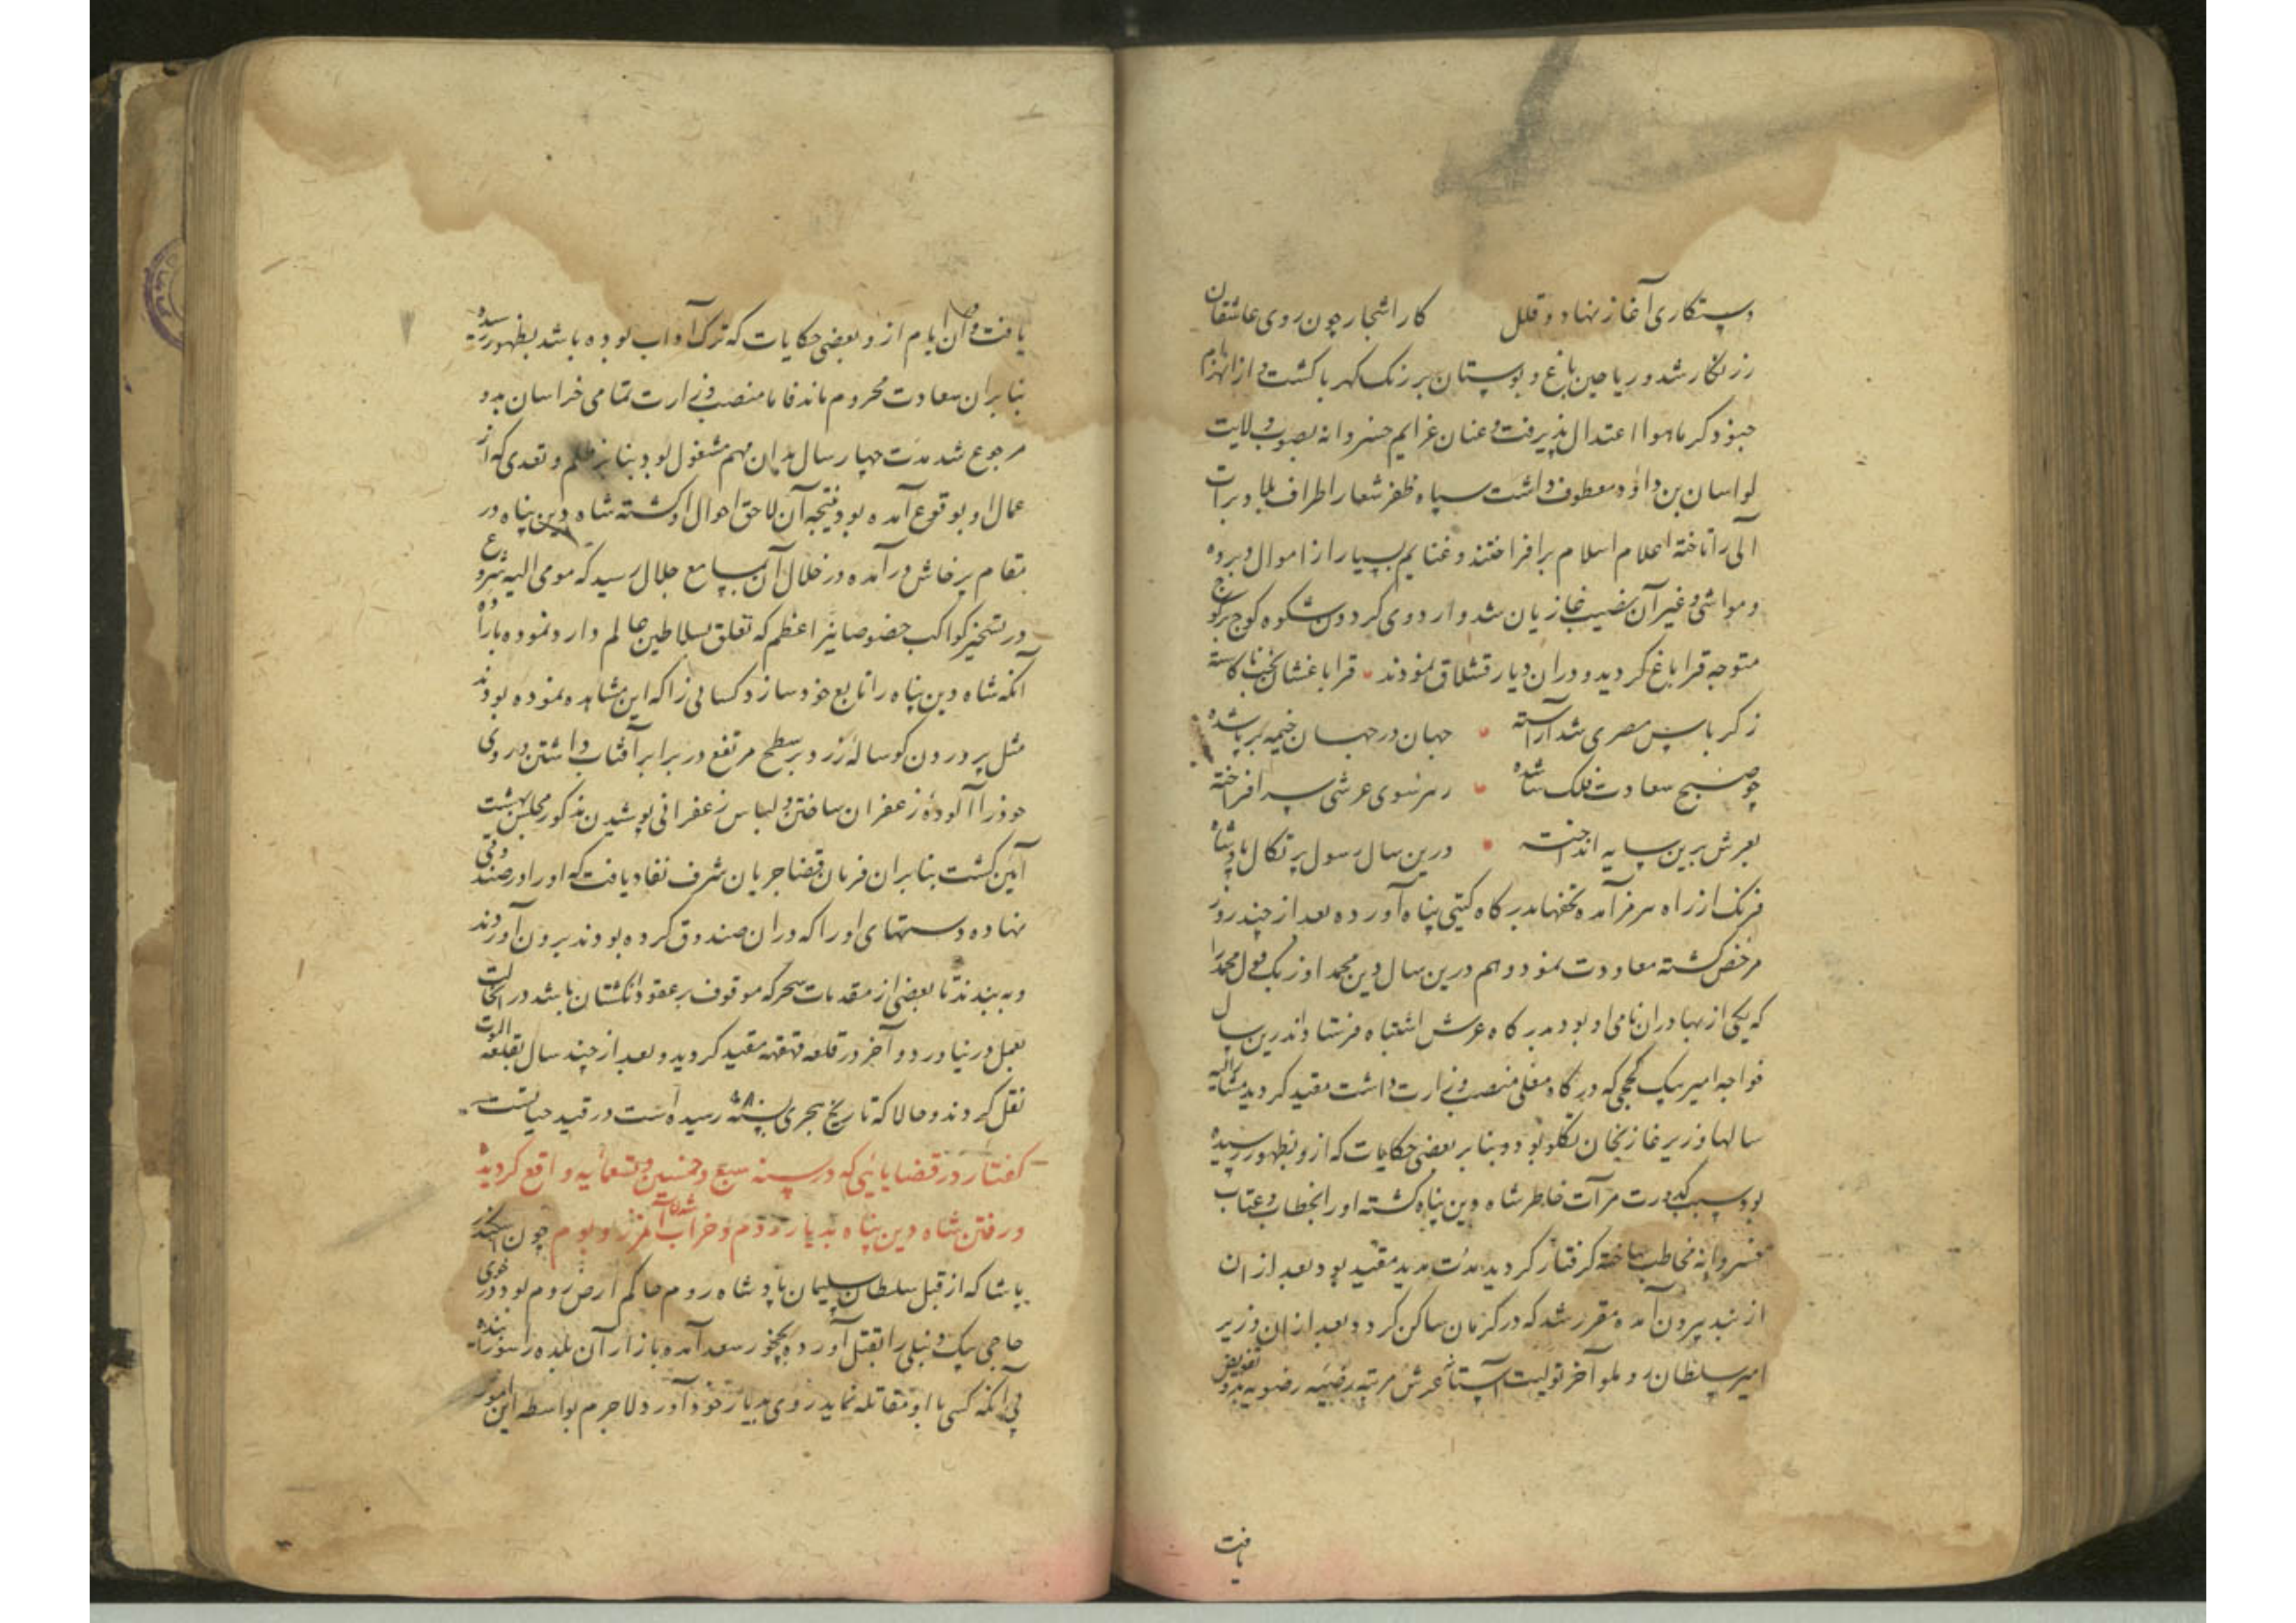 دستکاری آغاز نهاد و قلل کار اشجار چون روی عاشقان
زرنگار شد و ریاحین باغ و بوستان برنک کهربا کشت و از انهزام
جنود کرما هوا اعتدال پذیرفت و عنان عزایم خسروانه بصوب ولایت
لواسان بن داود معطوف داشت سپاه ظفر شعار اطراف بلاد برات
ایلی را تاخته اعلام اسلام برافراختند و غنایم بسیار از اموال و برده
و مواشی و غیر آن نصیب غازیان شد و اردوی کردون شکوه کوچ بر کوچ
متوجه قراباغ کردید و دران دیار قشلاق نمودند قراباغشان
ز کرباس مصری شد آراسته جهان در جهان خیمه بر پا شده
چو صبح سعادت فلک سا شده سر سوی عرشی سر افراخته
بعرش برین سایه انداخته درین سال رسول پرتکال پادشاه
فرنک از راه هرمز آمده تحفها بدرکاه کیتی پناه آورده بعد از چند روز
مرخص کشته معاودت نمود و هم درین سال دین محمد اوزبک قول محمد را
که یکی از بهادران نامی او بود بدرکاه عرش اشتباه فرستاد اندرین سال
خواجه امیر بیک کججی که در درکاه معلی منصب وزارت داشت مقید کردید مشارالیه
سالها وزیر غازیخان تکلو بود و بنا بر بعضی حکایات که ازو بظهور رسیده
بود سبب کدورت مرآت خاطر شاه دین پناه کشته او را بخطاب و عتاب
خسروانه مخاطب ساخته کرفتار کردید مدت مدید مقید بود بعد از ان
از بند بیرون آمده مقرر شد که در کرمان ساکن کردد و بعد از ان وزیر
امیر سلطان روملو آخر تولیت آستانه عرش مرتبه رضیه رضویه بدو تفویض
یافت
یافت و در آن ایام ازو بعضی حکایات که ترک آداب بوده باشد بظهور رسیده
بنابران سعادت محروم ماند فاما منصب وزارت تمامی خراسان بدو
مرجوع شد مدت چهار سال بدان مهم مشغول بود بنا بر ظلم و تعدی که از
عمال او بوقوع آمده بود نتیجه آن لاحق احوال او کشته شاه دین پناه در
مقام پرخاش درآمده در خلال آن بمسامع جلال رسید که مومی الیه شروع
در تسخیر کواکب خصوصا نیر اعظم که تعلق بسلاطین عالم دارد نموده باراده
آنکه شاه دین پناه را تابع خود سازد کسانی را که این مشاهده نموده بودند
مثل پروردن کوساله زرد و بر سطح مرتفع در برابر آفتاب داشتن و روی
خود را آلوده زعفران ساختن و لباس زعفرانی پوشیدن مذکور مجلس بهشت
آئین کشت بنابران فرمان قضا جریان شرف نفاد یافت که او را در صندوقی
نهاده دستهای او را که دران صندوق کرده بودند برون آوردند
و به بندند تا بعضی از مقدمات سحر که موقوف بر عقود انکشتان باشد در انحالت
بعمل در نیاورد و آخر در قلعه قهقهه مقید کردید و بعد از چند سال بقلعه الموت
نقل کردند و حالا که تاریخ هجری بسنه ۹۸۰ رسیده است در قید حیاتست
کفتار در قضایائی که در سنه سبع و خمسین و تسعمائیه واقع کردیده
و رفتن شاه دین پناه بدیار روم و خراب شدن آن مرز و بوم چون اسکندر
پاشا که از قبل سلطان سلیمان پادشاه روم حاکم ارض روم بود در خوی
حاجی بیک دنبلی را بقتل آورده بچخور سعد آمده بازار آن بلده را سوزانیده
بی آنکه کسی با او مقاتله نماید روی بدیار خود آورد لاجرم بواسطه این امور